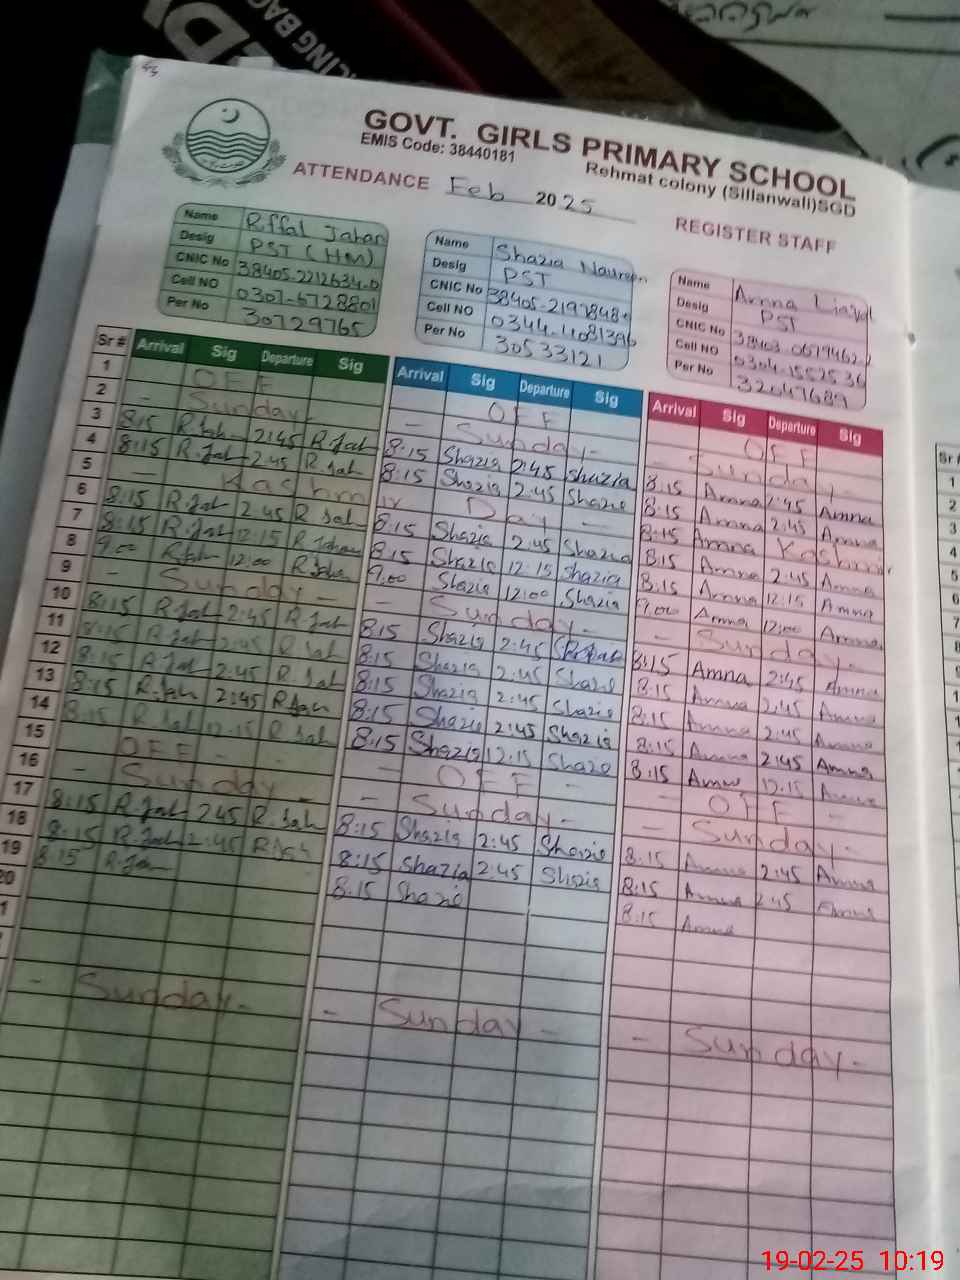 GOVT. GIRLS PRIMARY SCHOOL
EMIS Code: 38440181
Rehmat colony (Sillanwali)SGD
ATTENDANCE Feb 2025 REGISTER STAFF
Name Rffal Jahan
Desig PST (HM)
CNIC No 38405-2212634-0
Cell NO 0307-6728801
Per No 30729765
Name Shazia Naureen
Desig PST
CNIC No
Cell NO
Per No 30533121
Name Amna
Desig PST
CNIC No
Cell NO 0304-1552536
Per No 32047689
Sr # Arrival Sig Departure Sig Arrival Sig Departure Sig Arrival Sig Departure Sig
1 OFF OFF OFF
2 - Sunday - - Sunday - - Sunday -
3 8:15 R.Jah 2:45 R.Jah 8:15 Shazia 2:45 Shazia 8:15 Amna 2:45 Amna
4 8:15 R.Jah 2:45 R.Jah 8:15 Shazia 2:45 Shazia 8:15 Amna 2:45 Amna
5 - Kashmir Day - Kashmir
6 8:15 R.Jah 2:45 R Jah 8:15 Shazia 2:45 Shazia 8:15 Amna 2:45 Amna
7 8:15 R.Jah 12:15 R Jahan 8:15 Shazia 12:15 Shazia 8:15 Amna 12:15 Amna
8 9:00 R.Jah 12:00 R.Jah 9:00 Shazia 12:00 Shazia 9:00 Amna 12:00 Amna
9 - Sunday - - Sunday - - Sunday -
10 8:15 R.Jah 2:45 R.Jah 8:15 Shazia 2:45 8:15 Amna 2:45 Amna
11 8:15 R.Jah 2:45 R Jah 8:15 Shazia 2:45 Shazia 8:15 Amna 2:45 Amna
12 8:15 R.Jah 2:45 R Jah 8:15 Shazia 2:45 Shazia 8:15 Amna 2:45 Amna
13 8:15 R.Jah 2:45 R Jah 8:15 Shazia 2:45 Shazia 8:15 Amna 2:45 Amna
14 8:15 R Jah 12:15 R Jah 8:15 Shazia 12:15 Shazia 8:15 Amna 12:15 Amna
15 OFF - - - OFF - - OFF -
16 - Sunday - - Sunday - - Sunday -
17 8:15 R.Jah 2:45 R.Jah 8:15 Shazia 2:45 Shazia 8:15 Amna 2:45 Amna
18 8:15 R.Jah 2:45 R.Jah 8:15 Shazia 2:45 Shazia 8:15 Amna 2:45 Amna
19 8:15 R.Jah 8:15 Shazia 8:15 Amna
20
- Sunday - - Sunday - - Sunday -
19-02-25 10:19